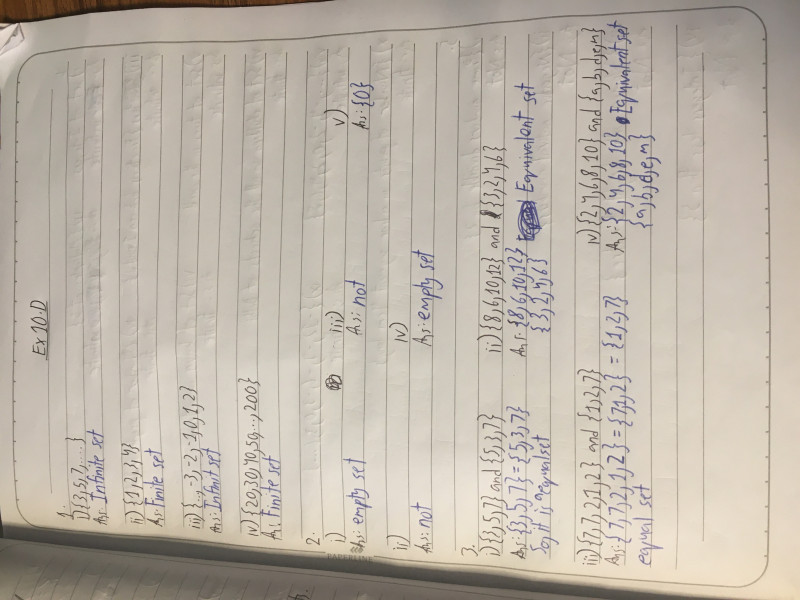 Ex 10.D
1.
i) {3,5,7,....}
As: Infinite set
ii) {1,2,3,4}
As: finite set
iii) {..,-3,-2,-1,0,1,2}
Ans: Infinit set
iv) {20,30,40,50,...,200}
A: Finite set
2.
i)
As: empty set
ii)
As: not
iii)
As: not
iv)
As: empty set
v)
As: {0}
3.
i) {3,5,7} and {5,3,7}
Ans: {3,5,7} = {5,3,7}
So, it is equal set
ii) {8,6,10,12} and {3,2,4,6}
Ans: {8,6,10,12} Equivalent set
{3,2,4,6}
iii) {7,7,2,1,2} and {1,2,7}
Ans: {7,7,2,1,2} = {7,1,2} = {1,2,7}
equal set
iv) {2,4,6,8,10} and {a,b,d,e,m}
Ans: {2,4,6,8,10} Equivalent set
{a,b,d,e,m}